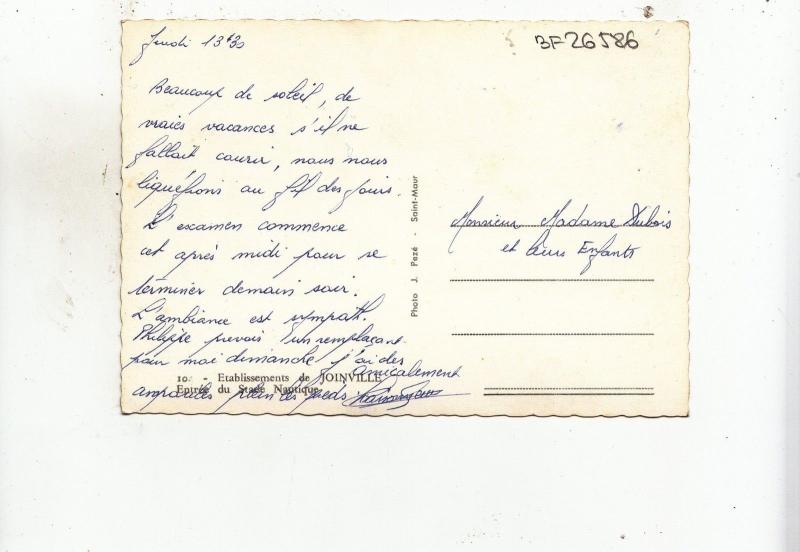 Jeudi 13h30
BF26586
Beaucoup de soleil, de
vraies vacances s'il ne
fallait courir, nous nous
liquéfions au fil des jours.
L'examen commence
cet après midi pour se
terminer demain soir.
L'ambiance est sympath.
Philippe prevois un remplaçant
pour moi dimanche j'ai des
ampoules plein les pieds
Amicalement
10. - Etablissements de JOINVILLE
Entrée du Stade Nautique
Photo J. Pezé - Saint-Maur
Monsieur Madame Dubois
et leurs Enfants